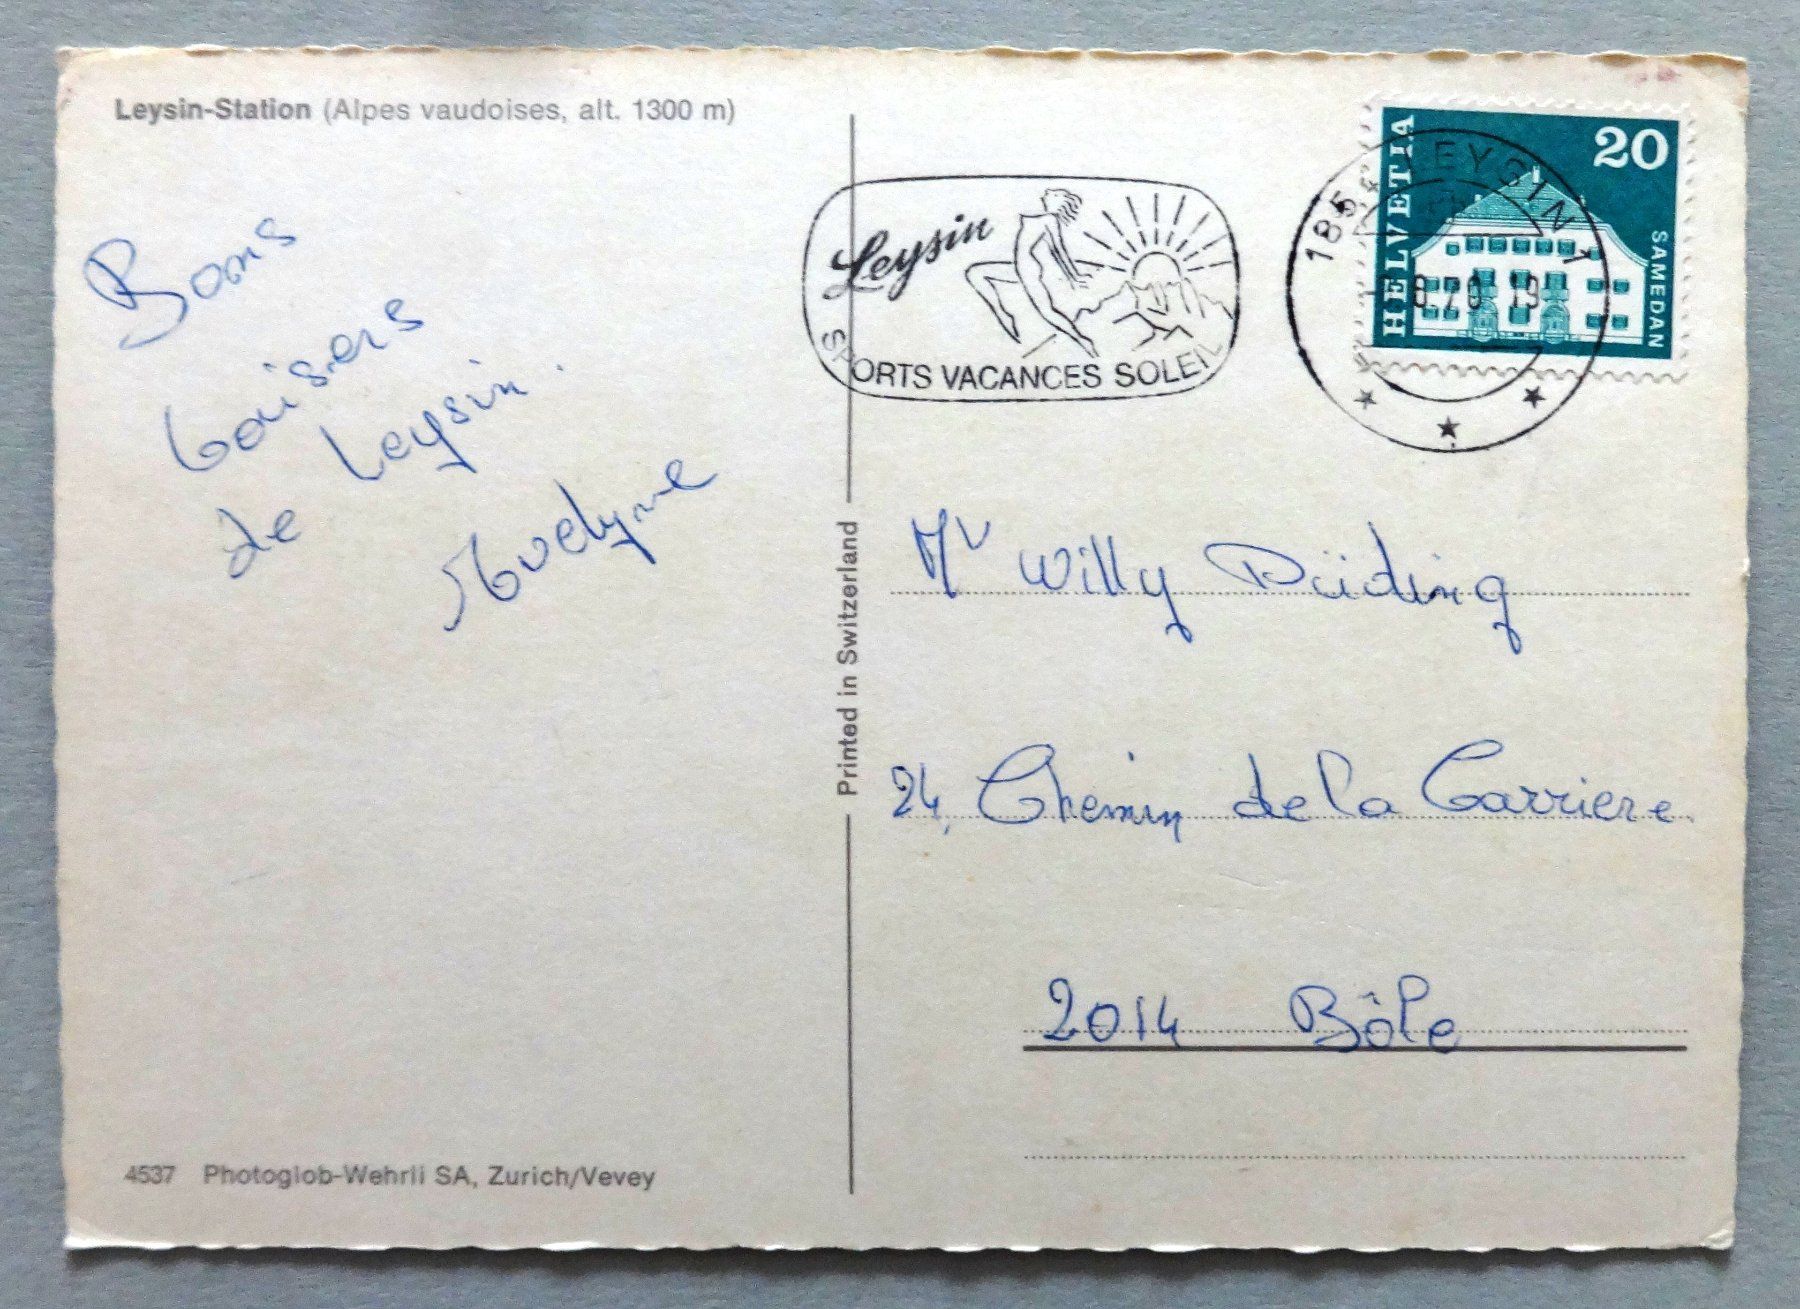 Leysin-Station (Alpes vaudoises, alt. 1300 m)
Bons
baisers
de Leysin.
Evelyne
4537 Photoglob-Wehrli SA, Zurich/Vevey
Printed in Switzerland
Leysin
SPORTS VACANCES SOLEIL
1854 LEYSIN 1
8.70 19
HELVETIA
20
SAMEDAN
Mr Willy Düding
24, Chemin de la Carriere
2014 Bôle